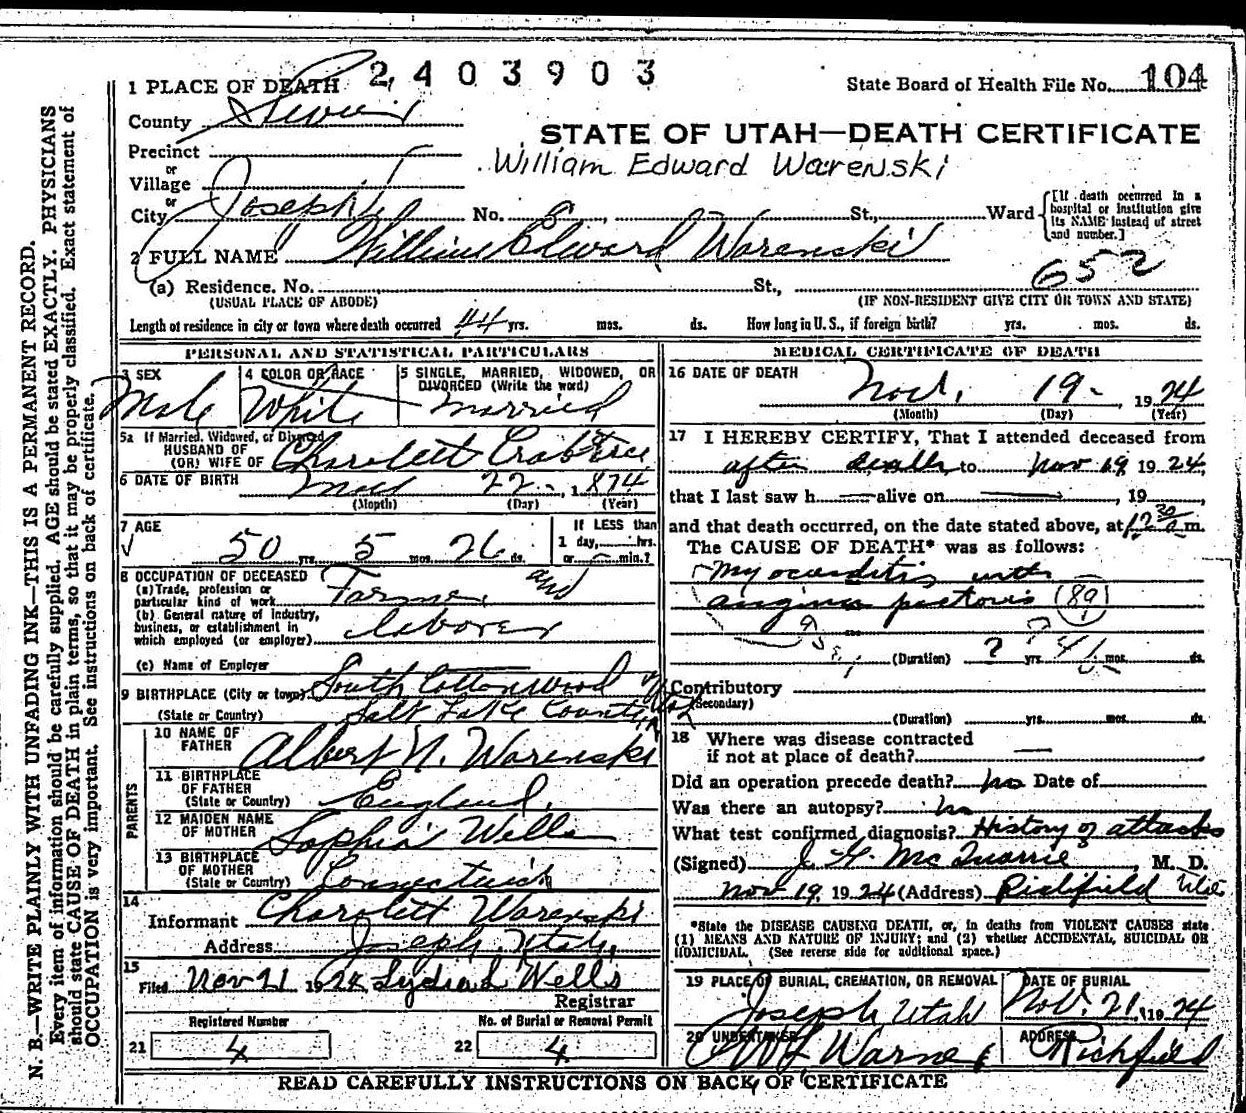 2403903
1 PLACE OF DEATH
State Board of Health File No. 104
County Sevier
STATE OF UTAH—DEATH CERTIFICATE
Precinct
William Edward Warenski
or
Village
or
City Joseph No. St., Ward
[If death occurred in a
hospital or institution give
its NAME instead of street
and number.]
2 FULL NAME William Edward Warenski
652
(a) Residence. No. St.,
(USUAL PLACE OF ABODE) (IF NON-RESIDENT GIVE CITY OR TOWN AND STATE)
Length of residence in city or town where death occurred 44 yrs. mos. ds. How long in U. S., if foreign birth? yrs. mos. ds.
PERSONAL AND STATISTICAL PARTICULARS
3 SEX
Male
4 COLOR OR RACE
White
5 SINGLE, MARRIED, WIDOWED, OR
DIVORCED (Write the word)
Married
5a If Married, Widowed, or Divorced
HUSBAND OF
(OR) WIFE OF Charolett Crabtree
6 DATE OF BIRTH 22 1874
(Month) (Day) (Year)
7 AGE
50 yrs. 5 mos. 26 ds.
If LESS than
1 day, hrs.
or min.?
8 OCCUPATION OF DECEASED
(a) Trade, profession or
particular kind of work Farmer and
(b) General nature of industry,
business, or establishment in
which employed (or employer) laborer
(c) Name of Employer
9 BIRTHPLACE (City or town) South Cottonwood
(State or Country) Salt Lake County Utah
PARENTS
10 NAME OF
FATHER Albert N. Warenski
11 BIRTHPLACE
OF FATHER
(State or Country) England.
12 MAIDEN NAME
OF MOTHER Sophia Wells
13 BIRTHPLACE
OF MOTHER
(State or Country) Connecticut
14
Informant Charolett Warenski
Address Joseph, Utah.
15
Filed Nov 21 1924, Lydia L Wells
Registrar
Registered Number
21 4
No. of Burial or Removal Permit
22 4
MEDICAL CERTIFICATE OF DEATH
16 DATE OF DEATH
Nov. 19 - 1924
(Month) (Day) (Year)
17 I HEREBY CERTIFY, That I attended deceased from
after death to Nov 19, 1924,
that I last saw h alive on , 19
and that death occurred, on the date stated above, at 12 30 a m.
The CAUSE OF DEATH* was as follows:
Myocarditis with
angina pectoris (89)
(Duration) ? yrs. mos. ds.
Contributory
(Secondary)
(Duration) yrs. mos. ds.
18 Where was disease contracted
if not at place of death? —
Did an operation precede death? no Date of
Was there an autopsy? no
What test confirmed diagnosis? History of attacks
(Signed) J. G. McQuarrie, M. D.
Nov 19, 1924 (Address) Richfield Utah
*State the DISEASE CAUSING DEATH, or, in deaths from VIOLENT CAUSES state
(1) MEANS AND NATURE OF INJURY; and (2) whether ACCIDENTAL, SUICIDAL OR
HOMICIDAL. (See reverse side for additional space.)
19 PLACE OF BURIAL, CREMATION, OR REMOVAL
Joseph Utah
DATE OF BURIAL
Nov. 21, 1924
20 UNDERTAKER
Warner
ADDRESS
Richfield
READ CAREFULLY INSTRUCTIONS ON BACK OF CERTIFICATE
N. B.—WRITE PLAINLY WITH UNFADING INK—THIS IS A PERMANENT RECORD.
Every item of information should be carefully supplied. AGE should be stated EXACTLY. PHYSICIANS
should state CAUSE OF DEATH in plain terms, so that it may be properly classified. Exact statement of
OCCUPATION is very important. See instructions on back of certificate.